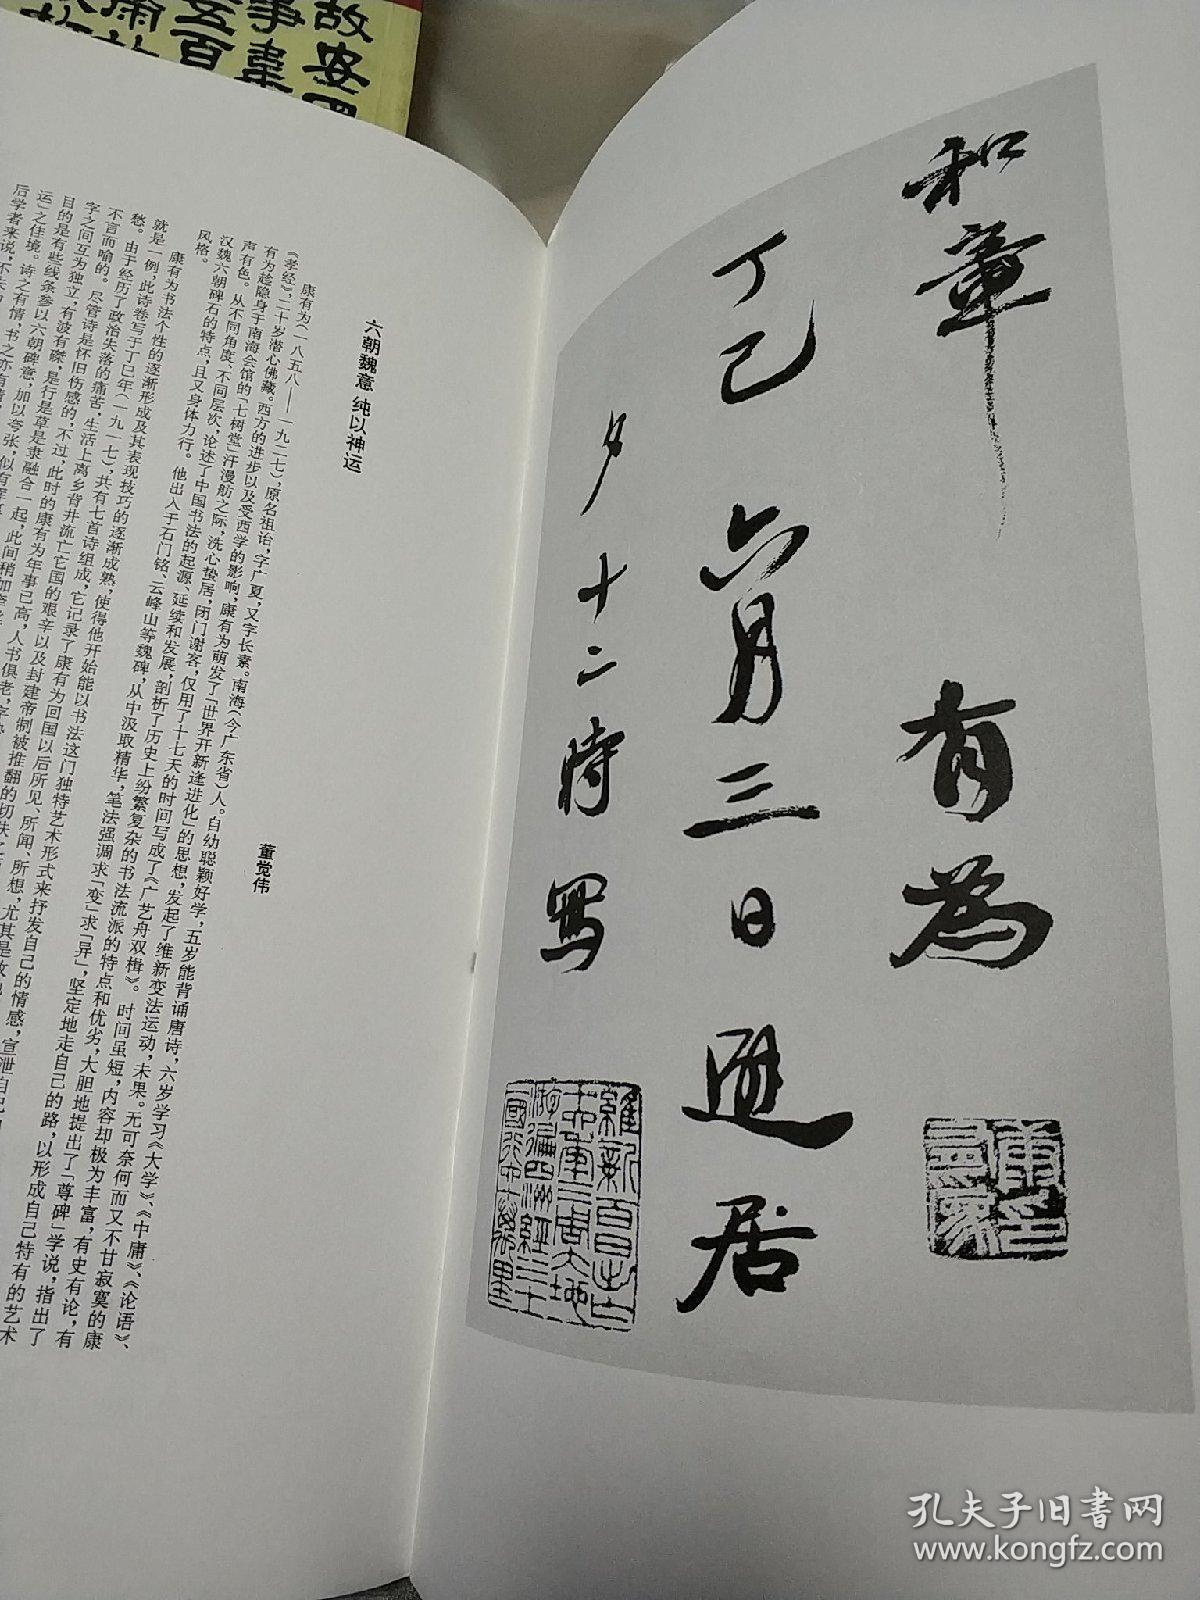 和章 有为
丁巳六月三日遯居
夕十二时写
维新百日出亡
十四年三周大地
游遍四洲经三十
一国行四十万里
六朝魏意 纯以神运
董觉伟
康有为（一八五八——一九二七），原名祖诒，字广夏，又字长素。南海（今广东省）人。自幼聪颖好学，五岁能背诵唐诗，六岁学习《大学》、《中庸》、《论语》、
《孝经》，二十岁潜心佛藏。西方的进步以及受西学的影响，康有为萌发了「世界开新逢进化」的思想，发起了维新变法运动，未果。无可奈何而又不甘寂寞的康
有为趁隐身于南海会馆的「七树堂」汗漫舫之际，洗心垫居，闭门谢客，仅用了十七天的时间写成了《广艺舟双楫》。时间虽短，内容却极为丰富，有史有论，有
声有色。从不同角度、不同层次，论述了中国书法的起源、延续和发展，剖析了历史上纷繁复杂的书法流派的特点和优劣，大胆地提出了「尊碑」学说，指出了
汉魏六朝碑石的特点，且又身体力行。他出入于石门铭、云峰山等魏碑，从中汲取精华，笔法强调求「变」求「异」，坚定地走自己的路，以形成自己特有的艺术
风格。
康有为书法个性的逐渐形成及其表现技巧的逐渐成熟，使得他开始能以书法这门独特艺术形式来抒发自己的情感，宣泄自己
就是一例，此诗卷写于丁巳年（一九一七），共有七首诗组成，它记录了康有为回国以后所见、所闻、所想，尤其是
愁。由于经历了政治失落的痛苦，生活上离乡背井流亡它国的艰辛以及封建帝制被推翻的切肤之
不言而喻的。尽管诗是怀旧伤感的，不过，此时的康有为年事已高，人书俱老，字
字之间互为独立，有波有磔，是行是草是隶融合一起，此间稍加
目的是有些线条参以六朝碑意，加以夸张，似有
运」之佳境。诗之有情，书之亦有情
后学者来说，不失
孔夫子旧书网
www.kongfz.com